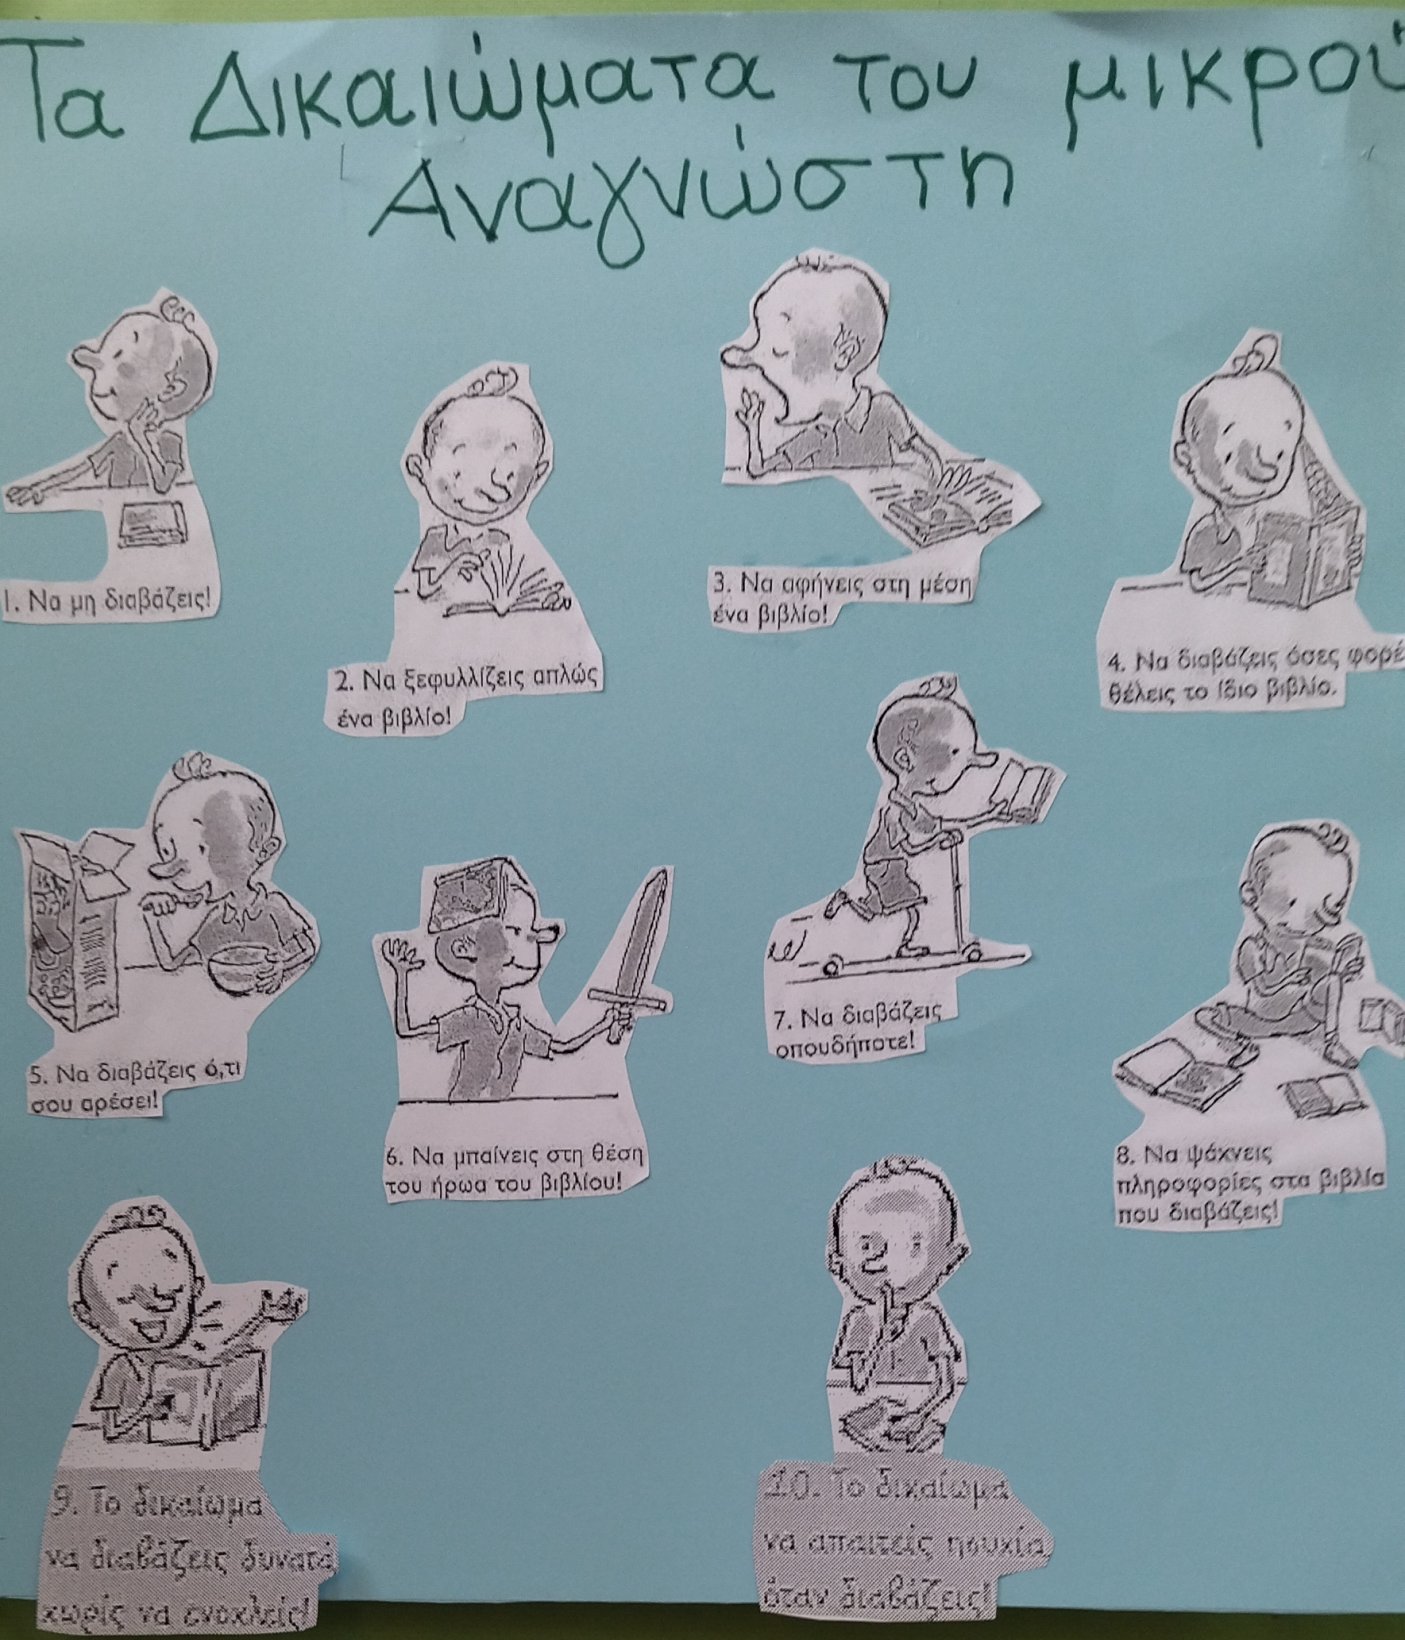 Τα Δικαιώματα του μικρού
Αναγνώστη
1. Να μη διαβάζεις!
2. Να ξεφυλλίζεις απλώς
ένα βιβλίο!
3. Να αφήνεις στη μέση
ένα βιβλίο!
4. Να διαβάζεις όσες φορέ
θέλεις το ίδιο βιβλίο.
5. Να διαβάζεις ό,τι
σου αρέσει!
6. Να μπαίνεις στη θέση
του ήρωα του βιβλίου!
7. Να διαβάζεις
οπουδήποτε!
8. Να ψάχνεις
πληροφορίες στα βιβλία
που διαβάζεις!
9. Το δικαίωμα
να διαβάζεις δυνατά
χωρίς να ενοχλείς!
10. Το δικαίωμα
να απαιτείς ησυχία
όταν διαβάζεις!